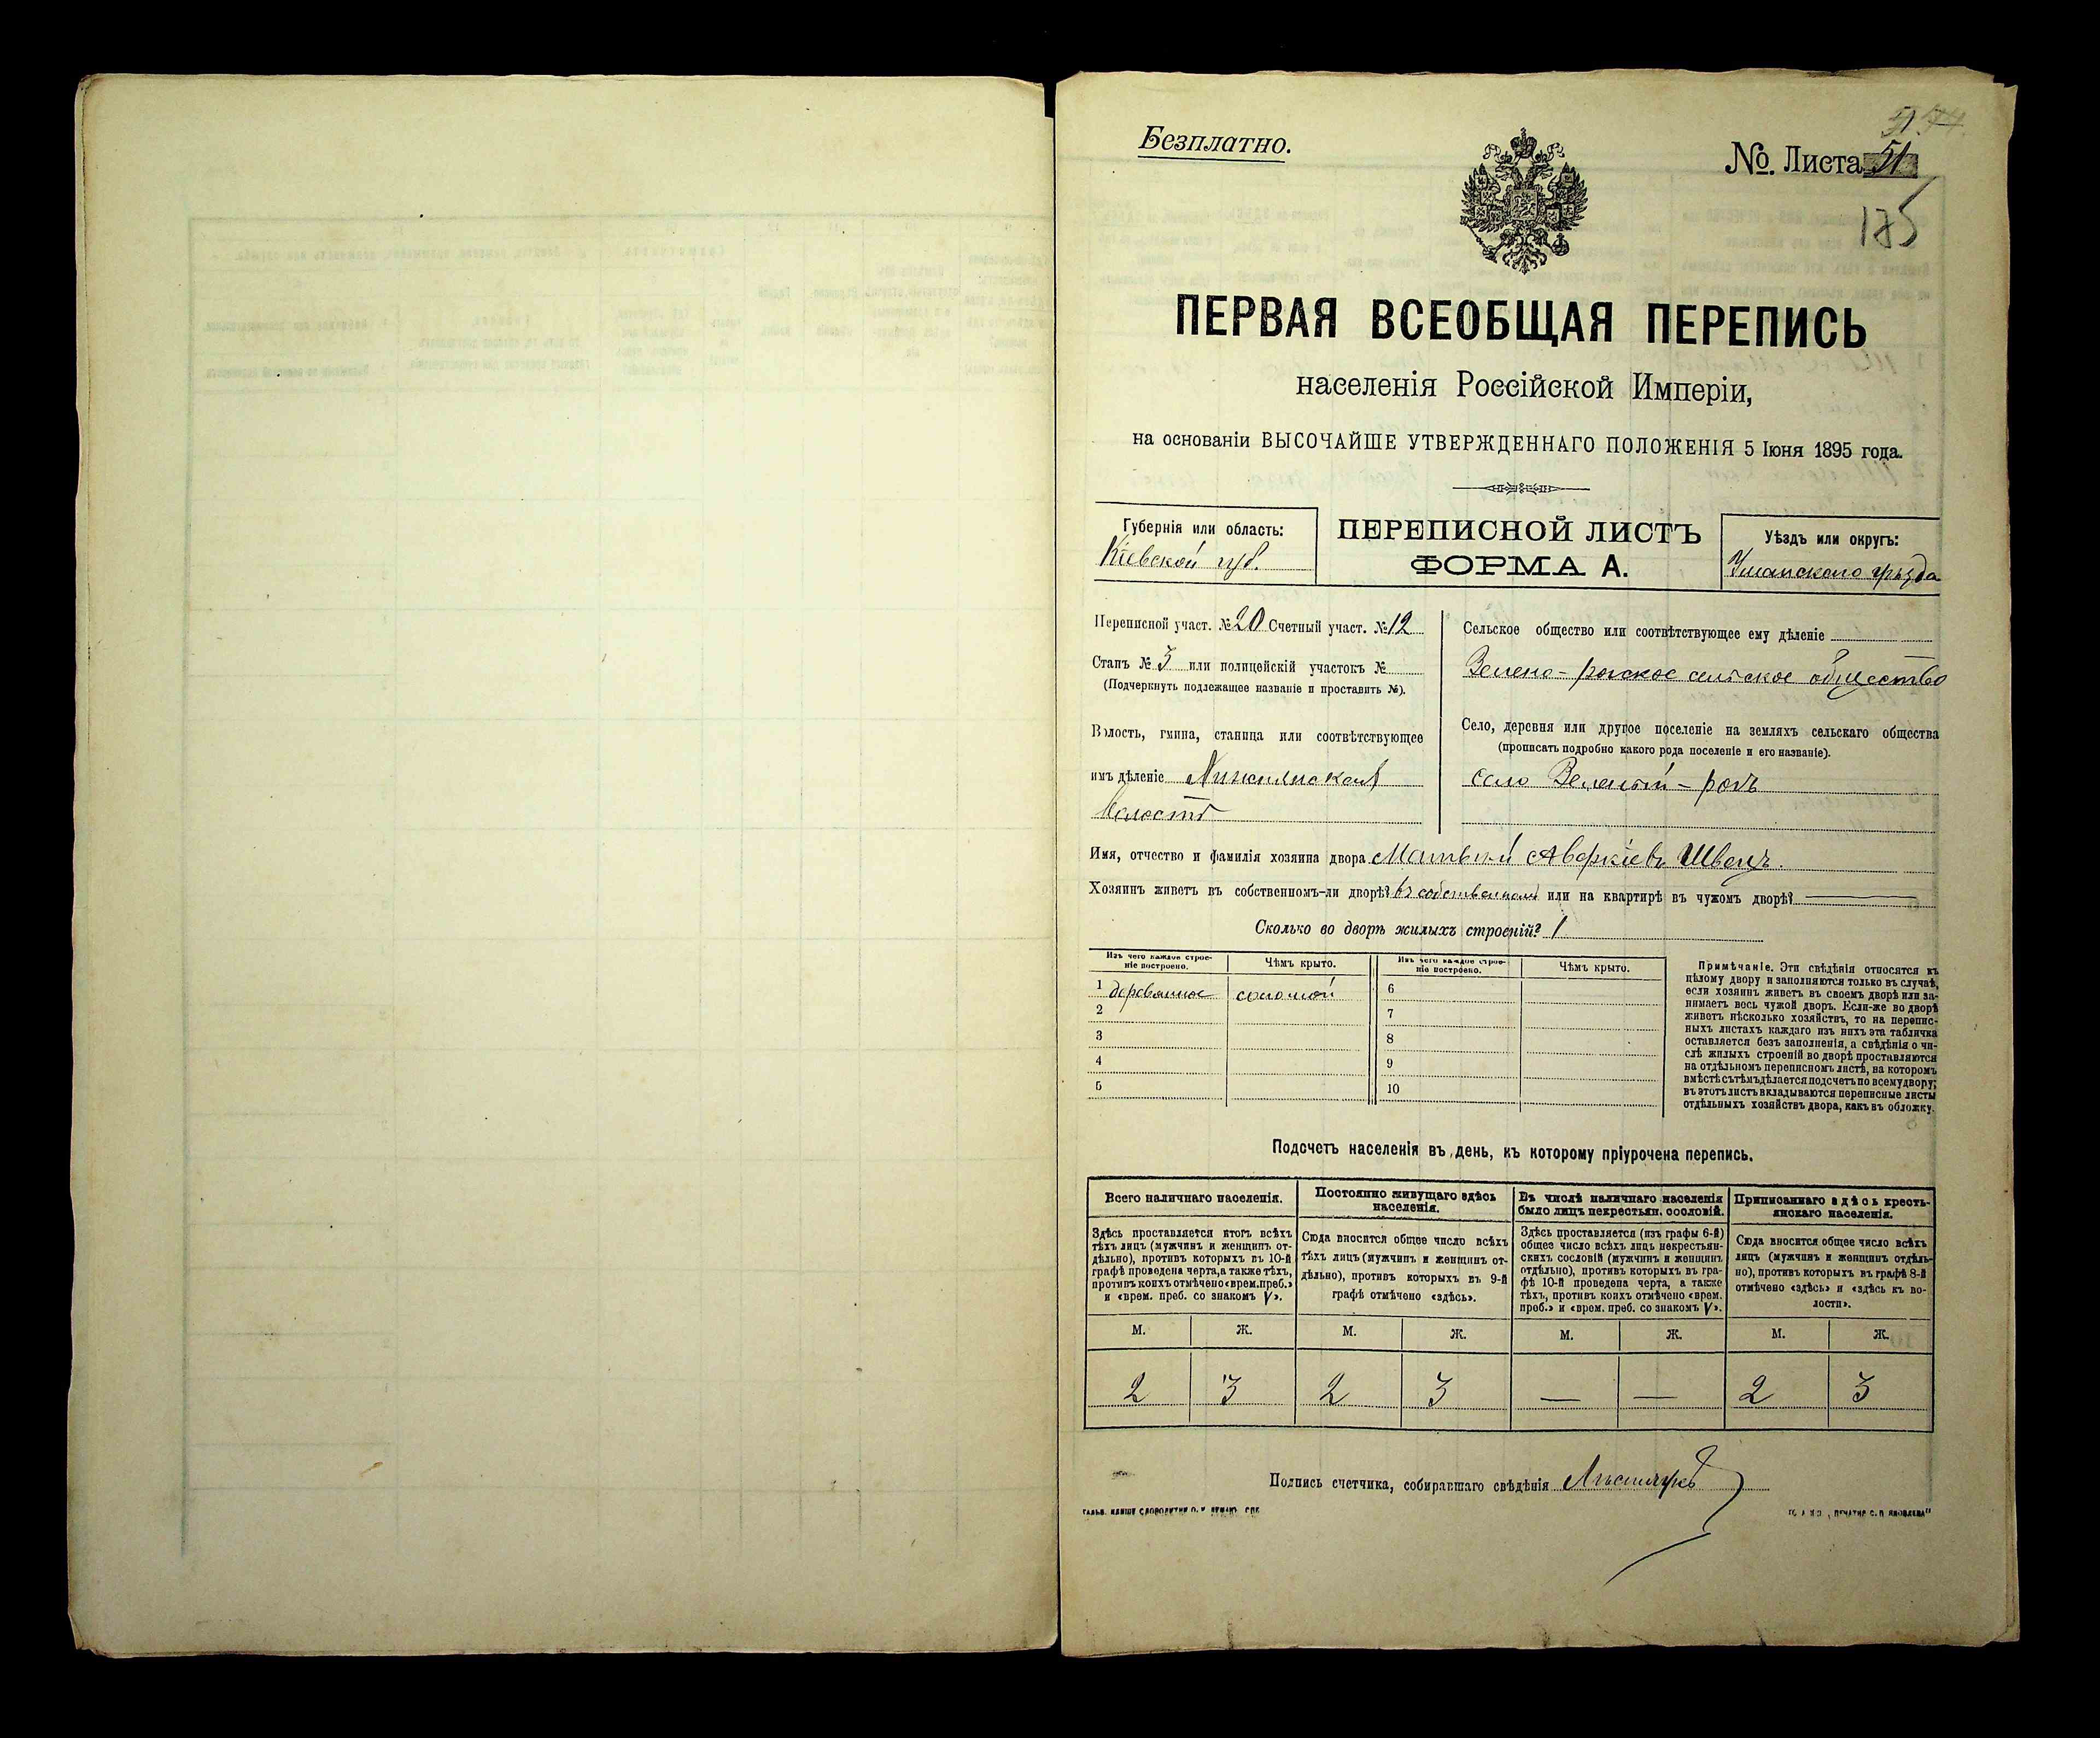 Безплатно.
№. Листа 51
175
ПЕРВАЯ ВСЕОБЩАЯ ПЕРЕПИСЬ
населенія Россійской Имперіи,
на основаніи ВЫСОЧАЙШЕ УТВЕРЖДЕННАГО ПОЛОЖЕНІЯ 5 Іюня 1895 года.
Губернія или область:
Кіевской губ.
ПЕРЕПИСНОЙ ЛИСТЪ
ФОРМА А.
Уѣздъ или округъ:
Уманскаго уѣзда
Переписной участ. № 20 Счетный участ. № 12
Станъ № 3 или полицейскій участокъ №
(Подчеркнуть подлежащее названіе и проставить №).
Волость, гмина, станица или соотвѣтствующее
имъ дѣленіе
Волость
Сельское общество или соотвѣтствующее ему дѣленіе
Зелено-рогское сельское общество
Село, деревня или другое поселеніе на земляхъ сельскаго общества
(прописать подробно какого рода поселеніе и его названіе).
село Зеленый-рогъ
Имя, отчество и фамилія хозяина двора Матвѣй Аверкіевъ Швецъ.
Хозяинъ живетъ въ собственномъ-ли дворѣ? въ собственномъ или на квартирѣ въ чужомъ дворѣ? —
Сколько во дворѣ жилыхъ строеній? 1
Изъ чего каждое строе-
ніе построено.
Чѣмъ крыто.
Изъ чего каждое строе-
ніе построено.
Чѣмъ крыто.
1 деревянное соломой
2
3
4
5
6
7
8
9
10
Примѣчаніе. Эти свѣдѣнія относятся къ
цѣлому двору и заполняются только въ случаѣ,
если хозяинъ живетъ въ своемъ дворѣ или за-
нимаетъ весь чужой дворъ. Если-же во дворѣ
живетъ нѣсколько хозяйствъ, то на перепис-
ныхъ листахъ каждаго изъ нихъ эта табличка
оставляется безъ заполненія, а свѣдѣнія о чи-
слѣ жилыхъ строеній во дворѣ проставляются
на отдѣльномъ переписномъ листѣ, на которомъ
вмѣстѣ съ тѣмъ дѣлается подсчетъ по всему двору;
въ этотъ листъ вкладываются переписные листы
отдѣльныхъ хозяйствъ двора, какъ въ обложку.
Подсчетъ населенія въ день, къ которому пріурочена перепись.
Всего наличнаго населенія.
Здѣсь проставляется итогъ всѣхъ
тѣхъ лицъ (мужчинъ и женщинъ от-
дѣльно), противъ которыхъ въ 10-й
графѣ проведена черта, а также тѣхъ,
противъ коихъ отмѣчено «врем. преб.»
и «врем. преб. со знакомъ V».
Постоянно живущаго здѣсь
населенія.
Сюда вносится общее число всѣхъ
тѣхъ лицъ (мужчинъ и женщинъ от-
дѣльно), противъ которыхъ въ 9-й
графѣ отмѣчено «здѣсь».
Въ числѣ наличнаго населенія
было лицъ некрестьян. сословій.
Здѣсь проставляется (изъ графы 6-й)
общее число всѣхъ лицъ некрестьян-
скихъ сословій (мужчинъ и женщинъ
отдѣльно), противъ которыхъ въ гра-
фѣ 10-й проведена черта, а также
тѣхъ, противъ коихъ отмѣчено «врем.
преб.» и «врем. преб. со знакомъ V».
Приписаннаго здѣсь кресть-
янскаго населенія.
Сюда вносится общее число всѣхъ
лицъ (мужчинъ и женщинъ отдѣль-
но), противъ которыхъ въ графѣ 8-й
отмѣчено «здѣсь» и «здѣсь къ во-
лости».
М. Ж. М. Ж. М. Ж. М. Ж.
2 3 2 3 — — 2 3
Подпись счетчика, собиравшаго свѣдѣнія